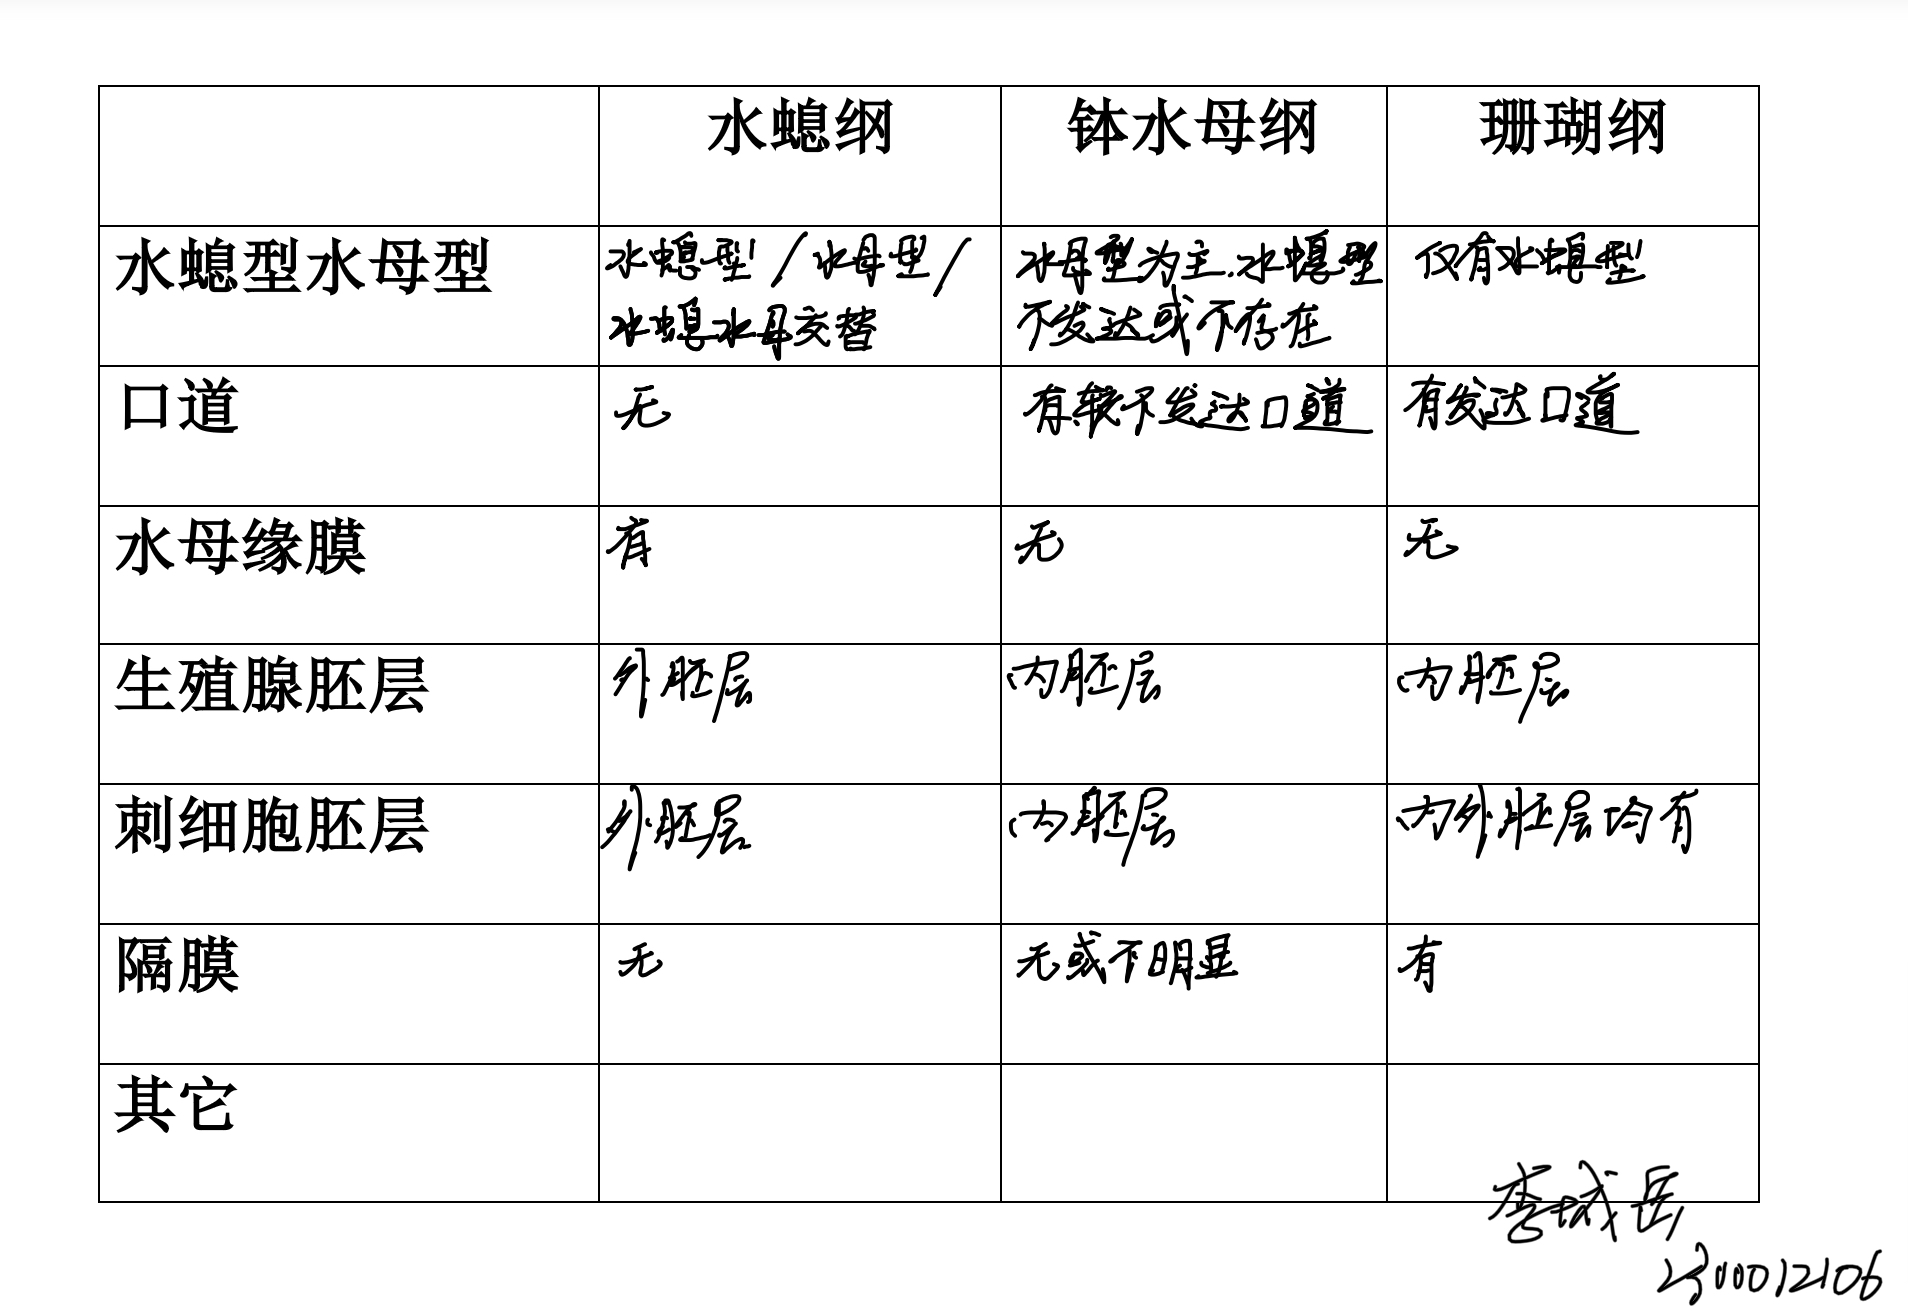 水螅纲 钵水母纲 珊瑚纲
水螅型水母型 水螅型/水母型/ 水母型为主.水螅型 仅有水螅型
水螅水母交替 不发达或不存在
口道 无 有较不发达口道 有发达口道
水母缘膜 有 无 无
生殖腺胚层 外胚层 内胚层 内胚层
刺细胞胚层 外胚层 内胚层 内外胚层均有
隔膜 无 无或不明显 有
其它
李城岳
2300012106